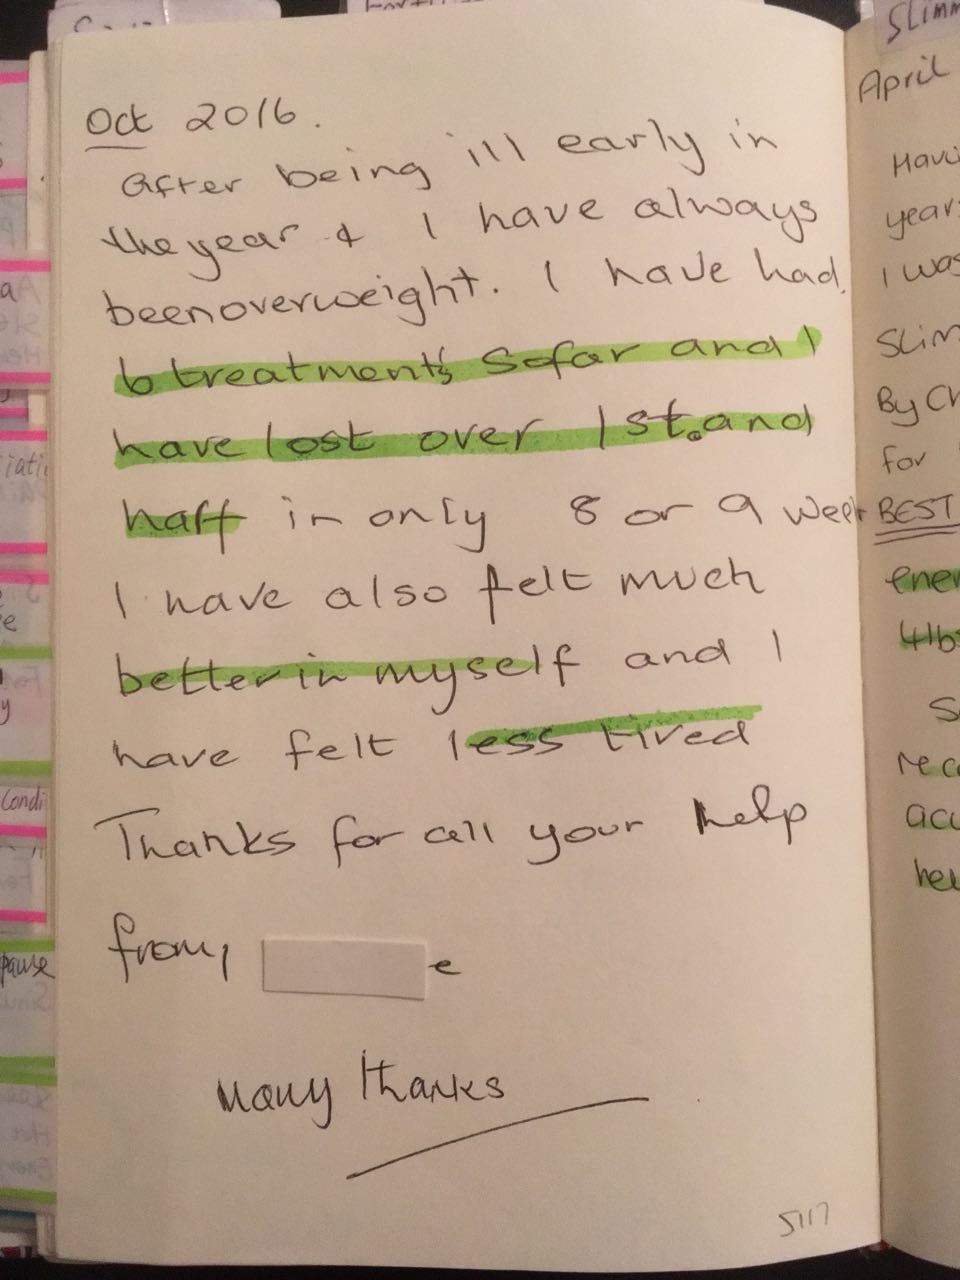 Oct 2016.
After being ill early in
the year & I have always
beenoverweight. I have had.
6 treatment's Sofar and I
have lost over 1st. and
haff in only 8 or 9 week
I have also felt much
better in myself and I
have felt less tired
Thanks for all your help
from,
e
Many thanks
5117
Slimm
April
Havi
year
I was
Slim
By Ch
for
BEST
ener
4lbs
S
rec
acu
hel
Condi
pause